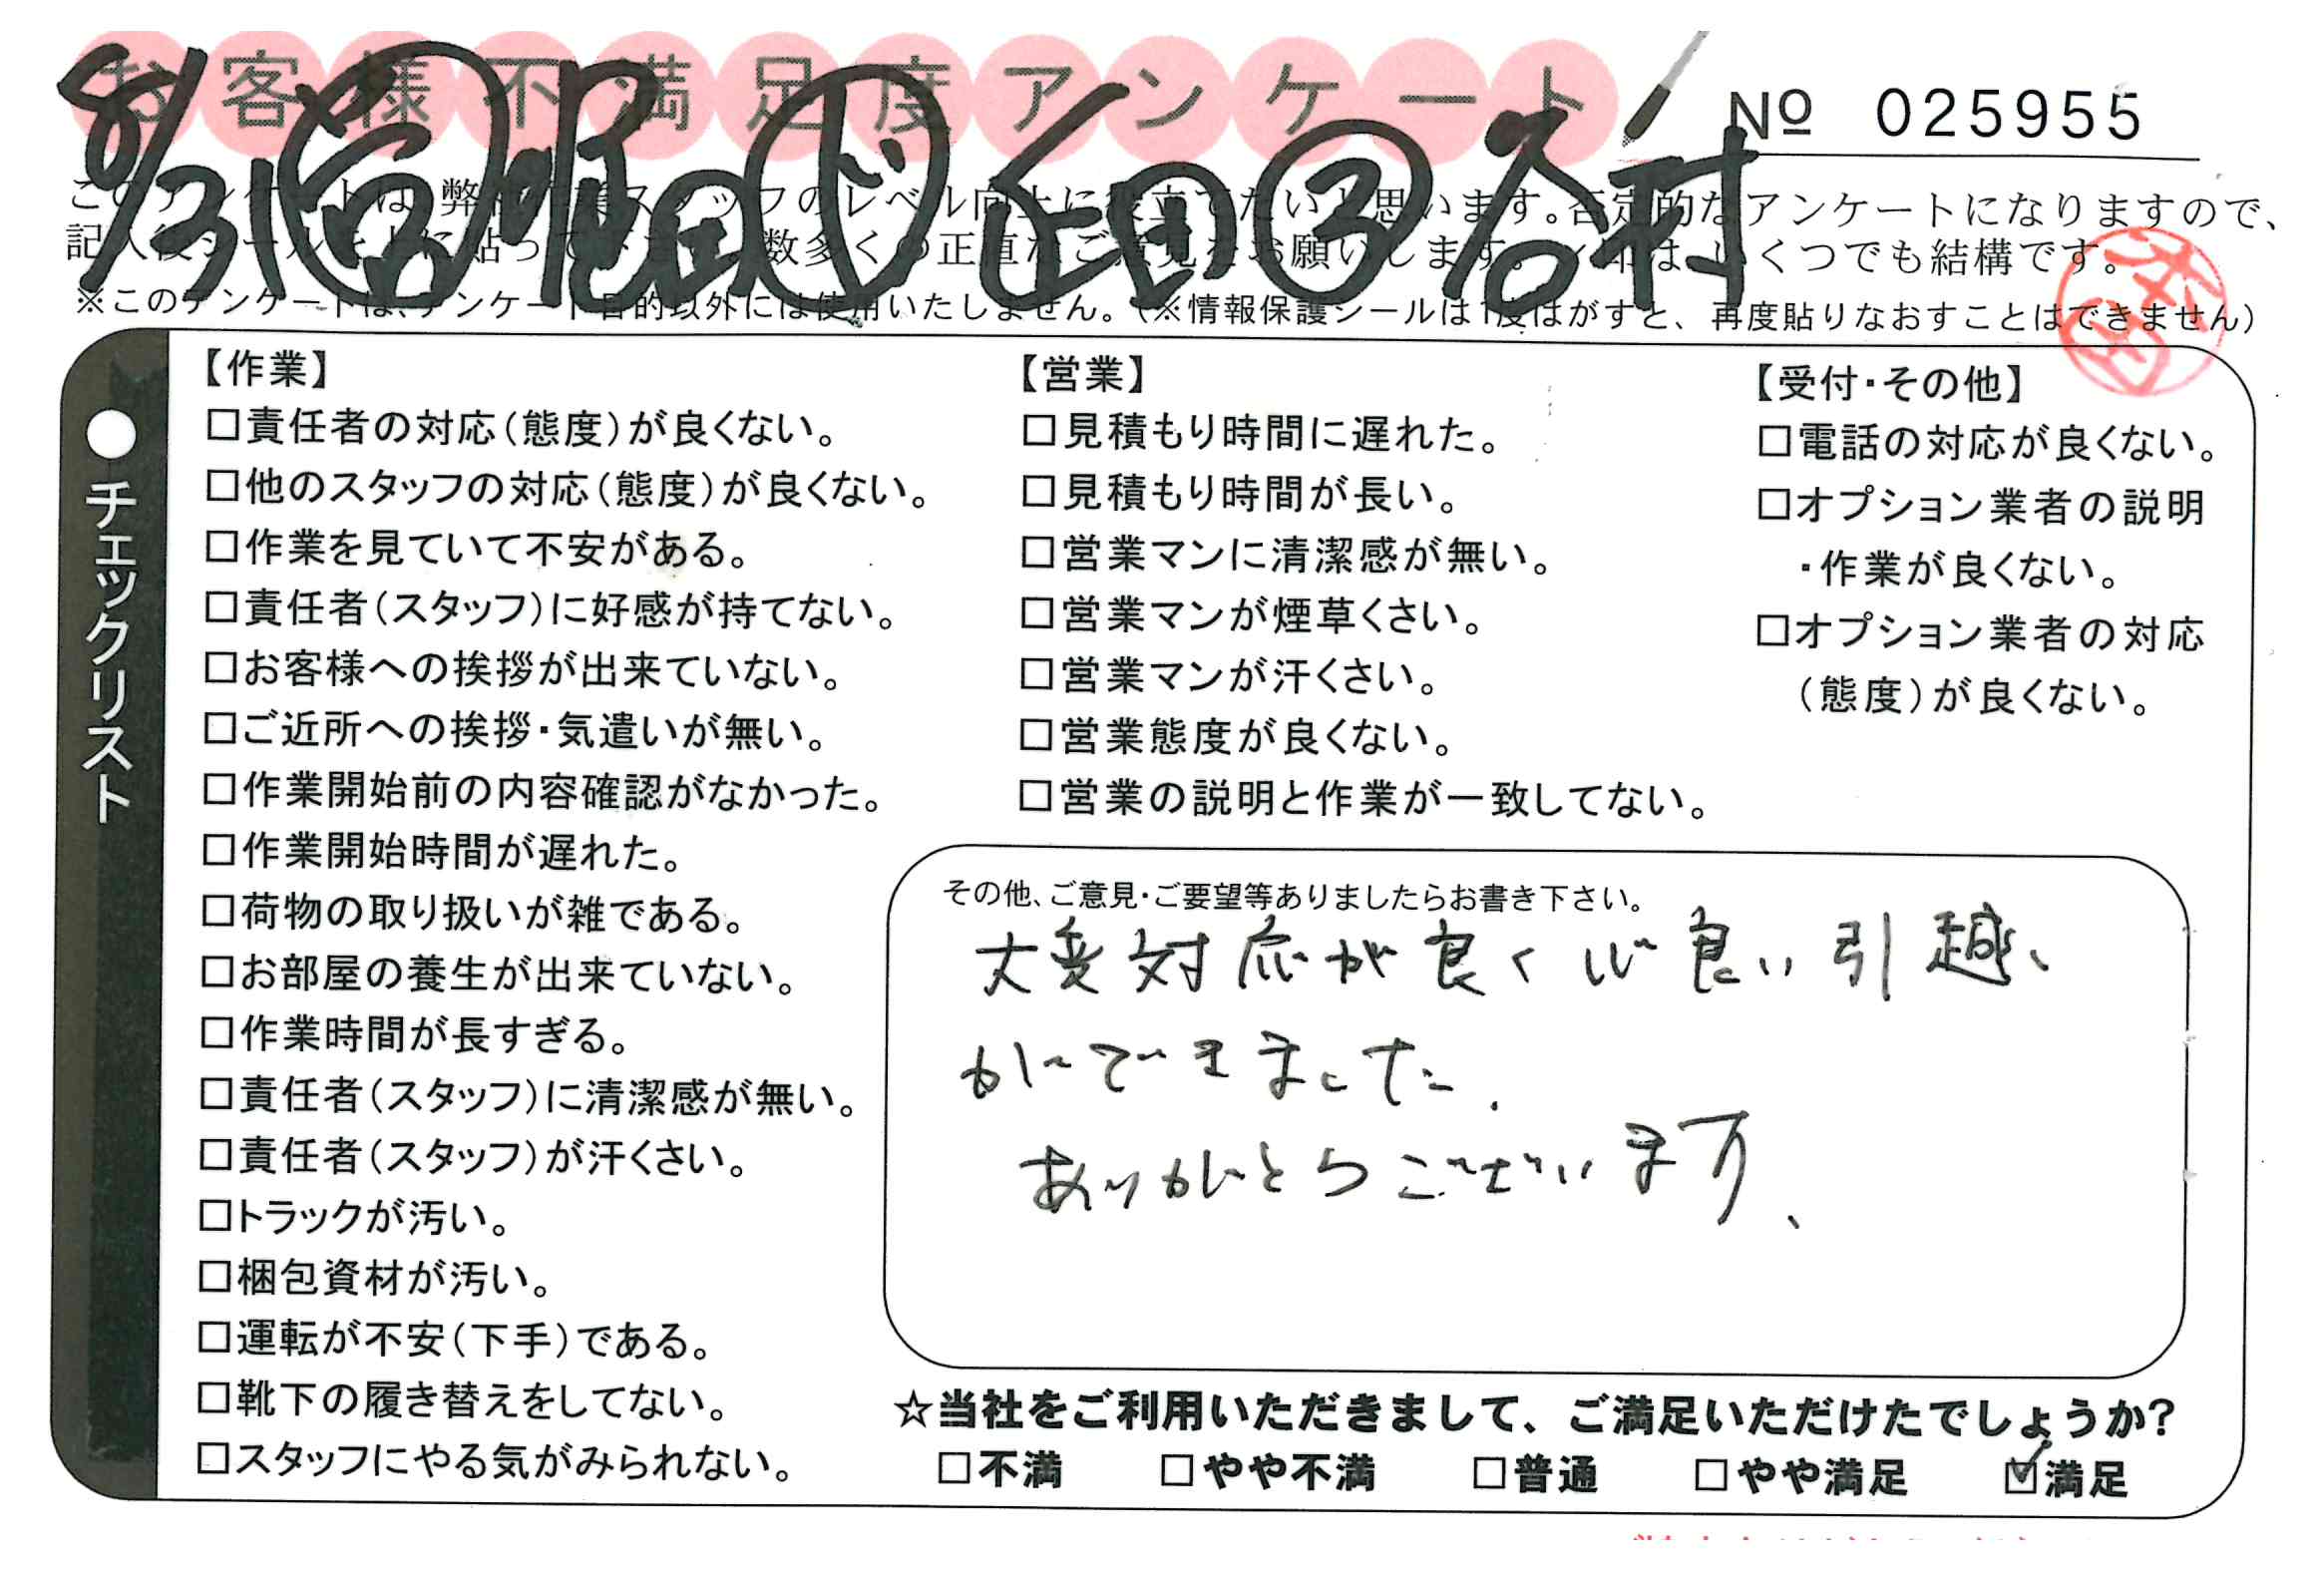 お客様不満足度アンケート
No 025955
8/31 営 堀田 ド 正田 3 谷村
このアンケートは、弊社作業スタッフのレベル向上に役立てたいと思います。否定的なアンケートになりますので、
記入後シールを上に貼って下さい。数多くの正直なご意見をお願いします。✓印は、いくつでも結構です。
※このアンケートは、アンケート目的以外には使用いたしません。(※情報保護シールは1度はがすと、再度貼りなおすことはできません)
●チェックリスト
【作業】
□責任者の対応(態度)が良くない。
□他のスタッフの対応(態度)が良くない。
□作業を見ていて不安がある。
□責任者(スタッフ)に好感が持てない。
□お客様への挨拶が出来ていない。
□ご近所への挨拶・気遣いが無い。
□作業開始前の内容確認がなかった。
□作業開始時間が遅れた。
□荷物の取り扱いが雑である。
□お部屋の養生が出来ていない。
□作業時間が長すぎる。
□責任者(スタッフ)に清潔感が無い。
□責任者(スタッフ)が汗くさい。
□トラックが汚い。
□梱包資材が汚い。
□運転が不安(下手)である。
□靴下の履き替えをしてない。
□スタッフにやる気がみられない。
【営業】
□見積もり時間に遅れた。
□見積もり時間が長い。
□営業マンに清潔感が無い。
□営業マンが煙草くさい。
□営業マンが汗くさい。
□営業態度が良くない。
□営業の説明と作業が一致してない。
【受付・その他】
□電話の対応が良くない。
□オプション業者の説明
・作業が良くない。
□オプション業者の対応
(態度)が良くない。
その他、ご意見・ご要望等ありましたらお書き下さい。
大変対応が良く心良い引越、
ができました.
ありがとうございます、
☆当社をご利用いただきまして、ご満足いただけたでしょうか?
□不満 □やや不満 □普通 □やや満足 ☑満足